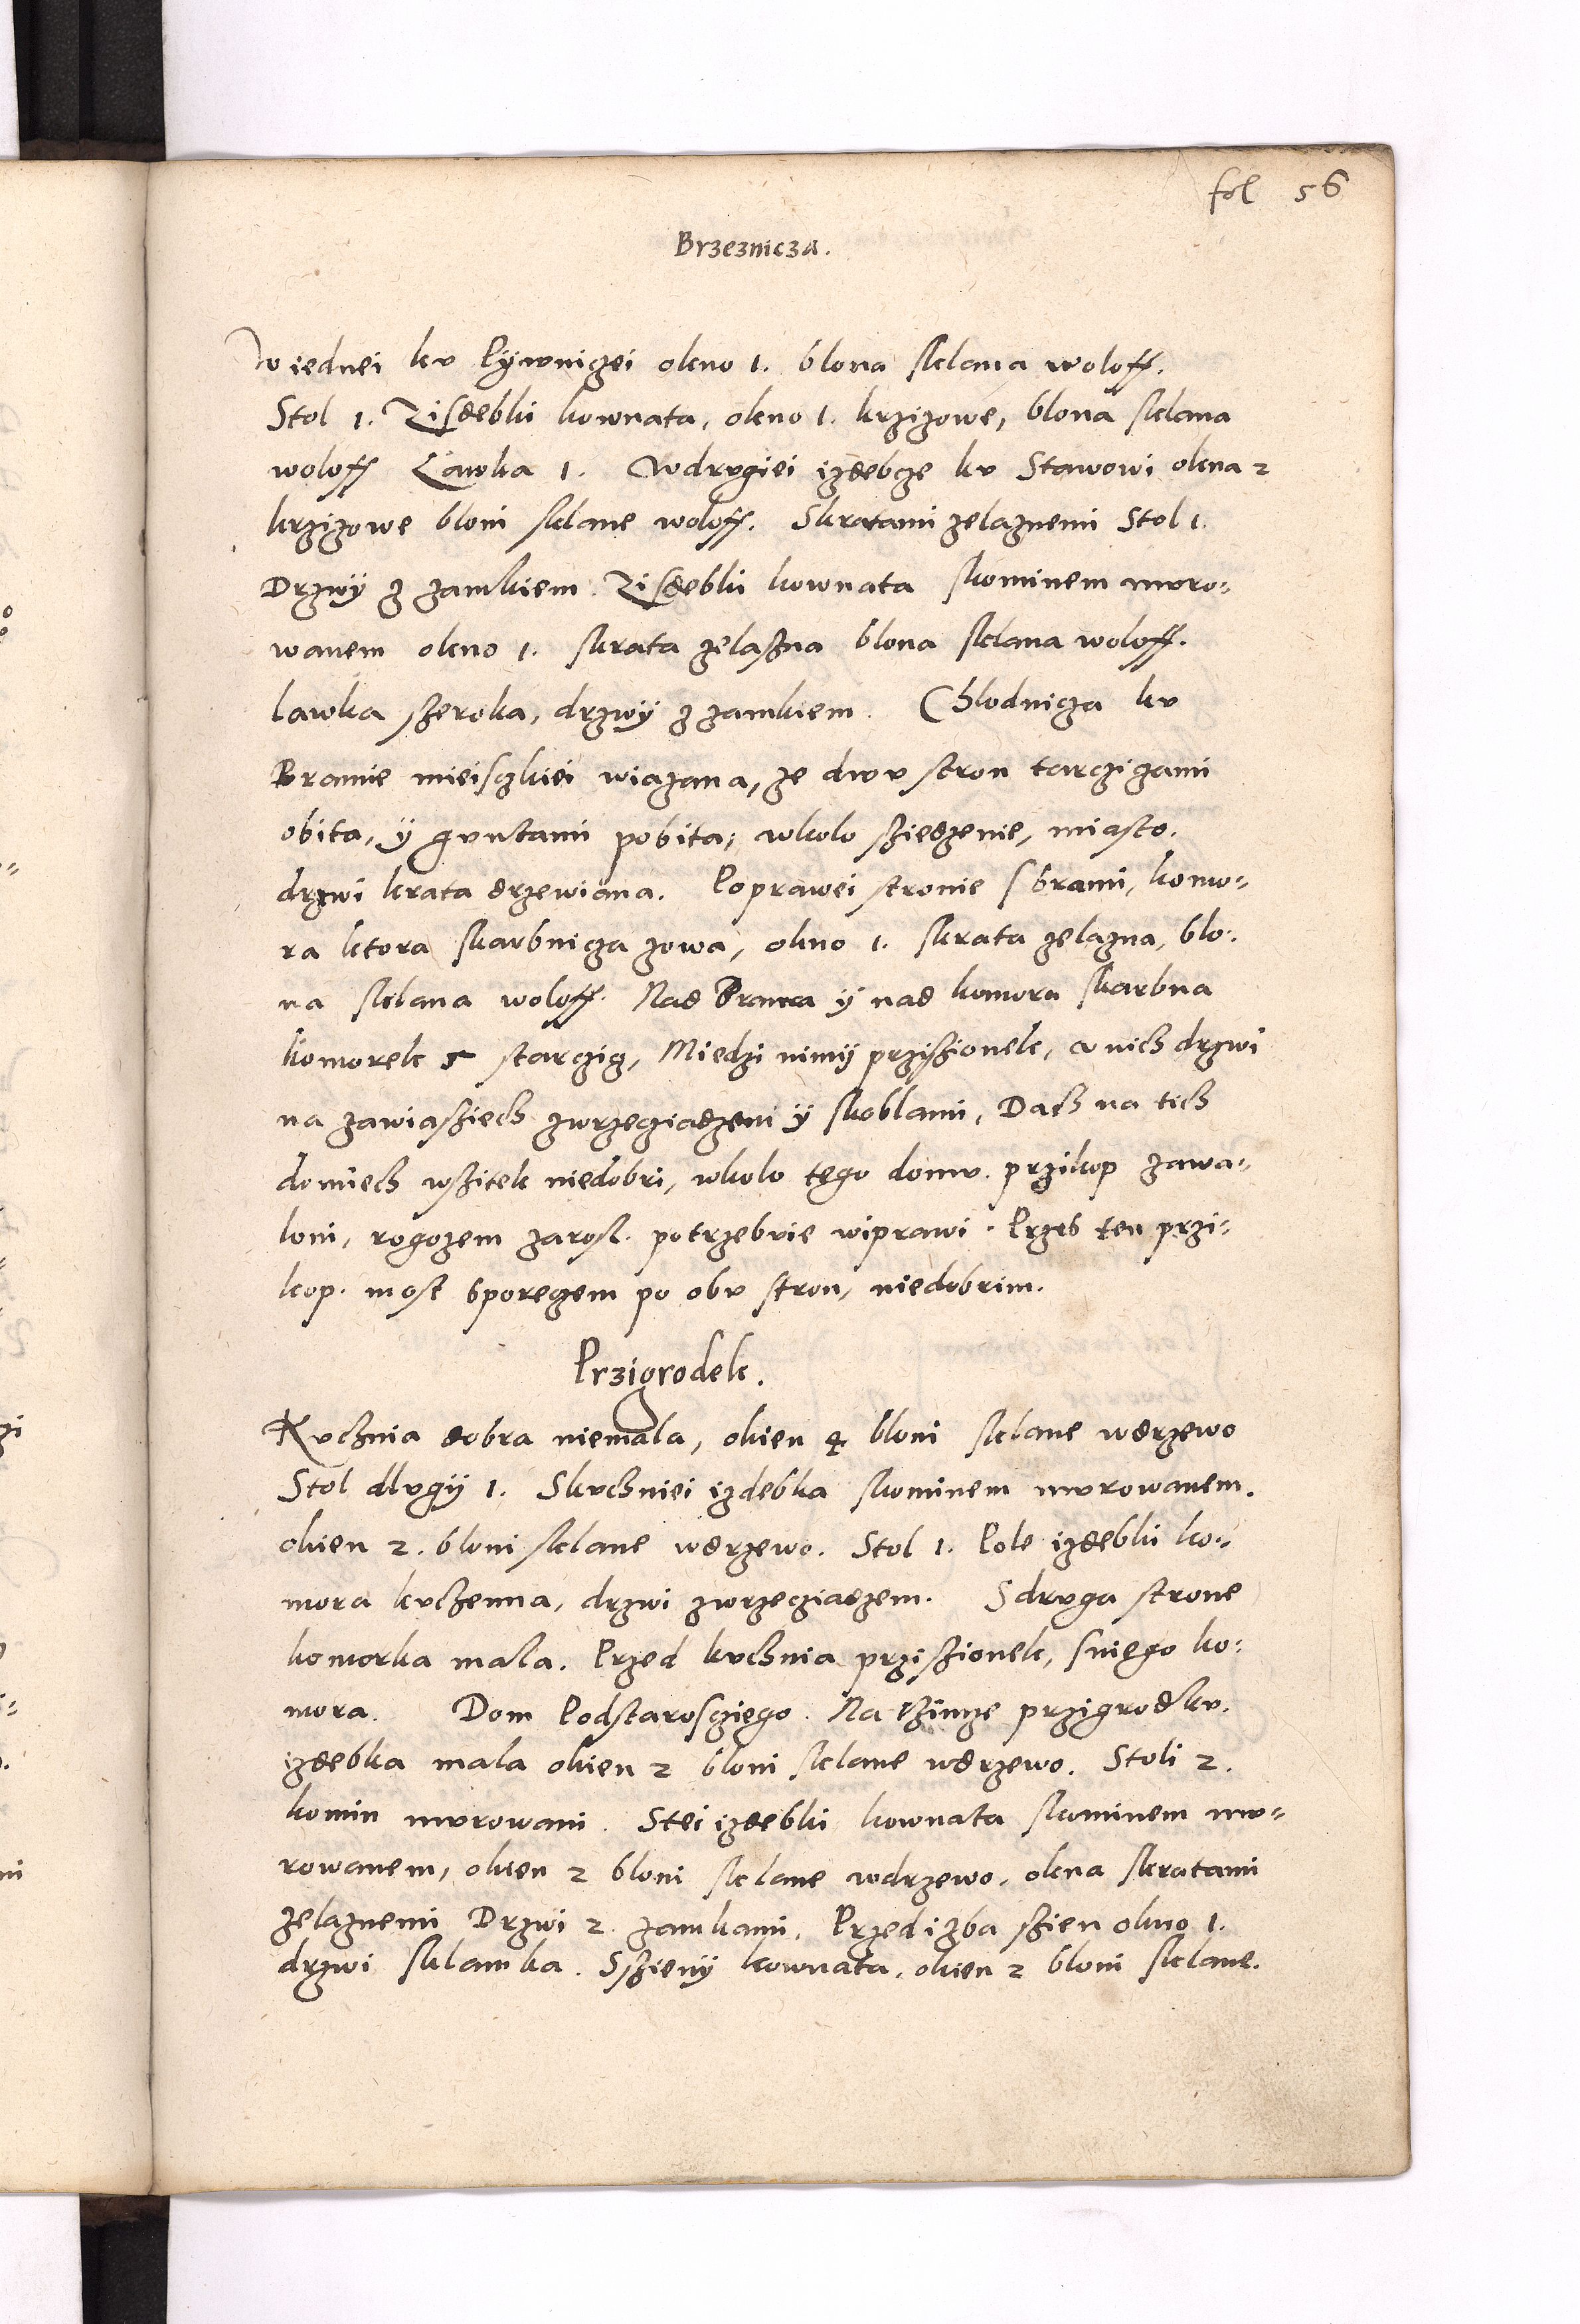 fol 56
Brzeznicza.
W iednei ku Pywniczei okno 1. blona sklana woloff.
Stol 1. Zisdebki komnata, okno 1. krzizowe, blona sklana
woloff Lawka 1. Wdrugiei izdebcze ku Stawowi okna 2
krzizowe bloni sklane woloff. Skratami zelaznemi Stol 1.
Drzwÿ z zamkiem. Zisdebki komnata skominem muro-
wanem okno 1. skrata zelaszna blona sklana woloff.
lawka szeroka, drzwÿ z zamkiem. Chlodnicza ku
Bramie mieisczkiei wiazana, ze dwu stron tarczizami
obita, ÿ guntami pobita, wkolo sziedzenie, miasto.
drzwi krata drzewiana. Poprawei stronie s brami, komo-
ra ktora skarbnicza zowa, okno 1. skrata zelazna, blo-
na sklana woloff. Nad Brama ÿ nad komora skarbna
komorek 5 starczig, Miedzi nimÿ prziszionek, v nich drzwi
na zawiasziech zwrzecziadzeni ÿ skoblami, Dach na tich
domiech wszitek niedobri, wkolo tego domu. przikop zawa-
loni, rogozem zarosl. potrzebuie wiprawi. Przes ten przi-
kop. most sporeczem po obu stron, niedobrim.
Przigrodek.
Kuchnia dobra niemala, okien 4 bloni sklane wdrzewo
Stol dlugÿ 1. Skuchniei izdebka skominem murowanem.
okien 2. bloni sklane wdrzewo. Stol 1. Pole izdebki ko-
mora kuchenna, drzwi zwrzecziadzem. Sdruga strone
komorka mala. Przed kuchnia prziszionek, sniego ko-
mora. Dom Podstarosciego. Na przigrodku.
izdebka mala okien 2 bloni sklane wdrzewo. Stoli 2.
komin murowani. Stei izdebki komnata skominem mu-
rowanem, okien 2 bloni sklane wdrzewo. okna skratami
zelaznemi Drzwi 2. zamkami, Przed izba szien okno 1.
drzwi sklamka. Sszienÿ komnata, okien 2 bloni sklane.